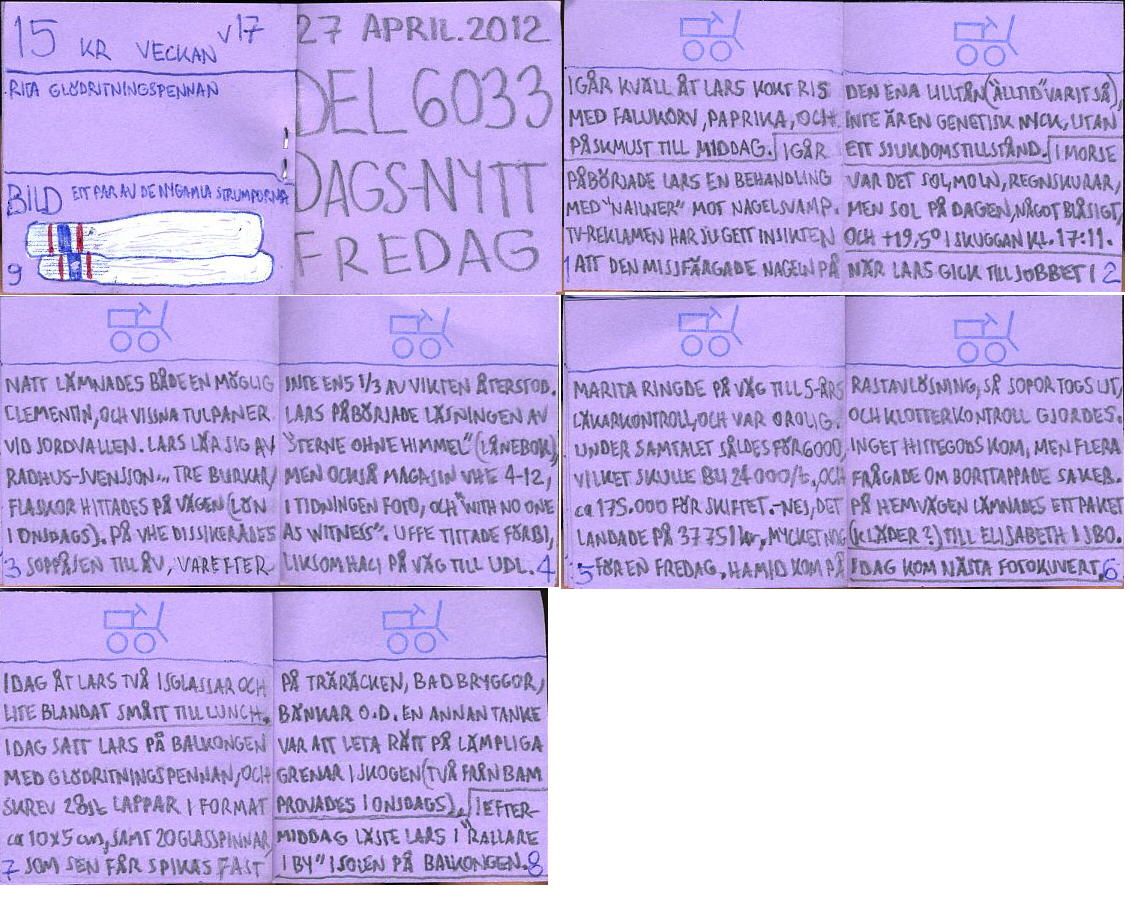 15 KR VECKAN V17
RITA GLÖDRITNINGSPENNAN
BILD ETT PAR AV DE NYGAMLA STRUMPORNA
9
27 APRIL.2012
DEL 6033
DAGS-NYTT
FREDAG
IGÅR KVÄLL ÅT LARS KOKT RIS
MED FALUKORV, PAPRIKA, OCH
PÅSKMUST TILL MIDDAG. IGÅR
PÅBÖRJADE LARS EN BEHANDLING
MED "NAILNER" MOT NAGELSVAMP.
TV-REKLAMEN HAR JU GETT INSIKTEN
1 ATT DEN MISSFÄRGADE NAGELN PÅ
DEN ENA LILLTÅN ("ALLTID" VARIT SÅ),
INTE ÄR EN GENETISK NYCK, UTAN
ETT SJUKDOMSTILLSTÅND. I MORSE
VAR DET SOL, MOLN, REGNSKURAR,
MEN SOL PÅ DAGEN, NÅGOT BLÅSIGT,
OCH +19,5° I SKUGGAN KL. 17:11.
NÄR LARS GICK TILL JOBBET I 2
NATT LÄMNADES BÅDE EN MÖGLIG
CLEMENTIN, OCH VISSNA TULPANER
VID JORDVALLEN. LARS LÄR SIG AV
RADHUS-SVENSSON... TRE BURKAR/
FLASKOR HITTADES PÅ VÄGEN (LÖN
I ONSDAGS). PÅ VHE DISSIKERADES
3 SOPPÅSEN TILL ÅV, VAREFTER
INTE ENS 1/3 AV VIKTEN ÅTERSTOD.
LARS PÅBÖRJADE LÄSNINGEN AV
"STERNE OHNE HIMMEL" (LÅNEBOK),
MEN OCKSÅ MAGASIN VHE 4-12,
I TIDNINGEN FOTO, OCH "WITH NO ONE
AS WITNESS". UFFE TITTADE FÖRBI,
LIKSOM HACI PÅ VÄG TILL UDL. 4
MARITA RINGDE PÅ VÄG TILL 5-ÅRS
LÄKARKONTROLL, OCH VAR OROLIG.
UNDER SAMTALET SÅLDES FÖR 6000,
VILKET SKULLE BLI 24000/t, OCH
ca 175.000 FÖR SKIFTET. -NEJ, DET
LANDADE PÅ 37751 kr, MYCKET NOG
5 FÖR EN FREDAG, HAMID KOM PÅ
RASTAVLÖSNING, SÅ SOPOR TOGS UT,
OCH KLOTTERKONTROLL GJORDES.
INGET HITTEGODS KOM, MEN FLERA
FRÅGADE OM BORTTAPPADE SAKER.
PÅ HEMVÄGEN LÄMNADES ETT PAKET
(KLÄDER?) TILL ELISABETH I JBO.
IDAG KOM NÄSTA FOTOKUVERT. 6
IDAG ÅT LARS TVÅ ISGLASSAR OCH
LITE BLANDAT SMÅTT TILL LUNCH.
IDAG SATT LARS PÅ BALKONGEN
MED GLÖDRITNINGSPENNAN, OCH
SKREV 28st LAPPAR I FORMAT
ca 10x5 cm, SAMT 20 GLASSPINNAR
7 SOM SEN FÅR SPIKAS FAST
PÅ TRÄRÄCKEN, BADBRYGGOR,
BÄNKAR O.D. EN ANNAN TANKE
VAR ATT LETA RÄTT PÅ LÄMPLIGA
GRENAR I SKOGEN (TVÅ FRÅN BAM
PROVADES I ONSDAGS). I EFTER-
MIDDAG LÄSTE LARS I "RALLARE
I BY" I SOLEN PÅ BALKONGEN. 8